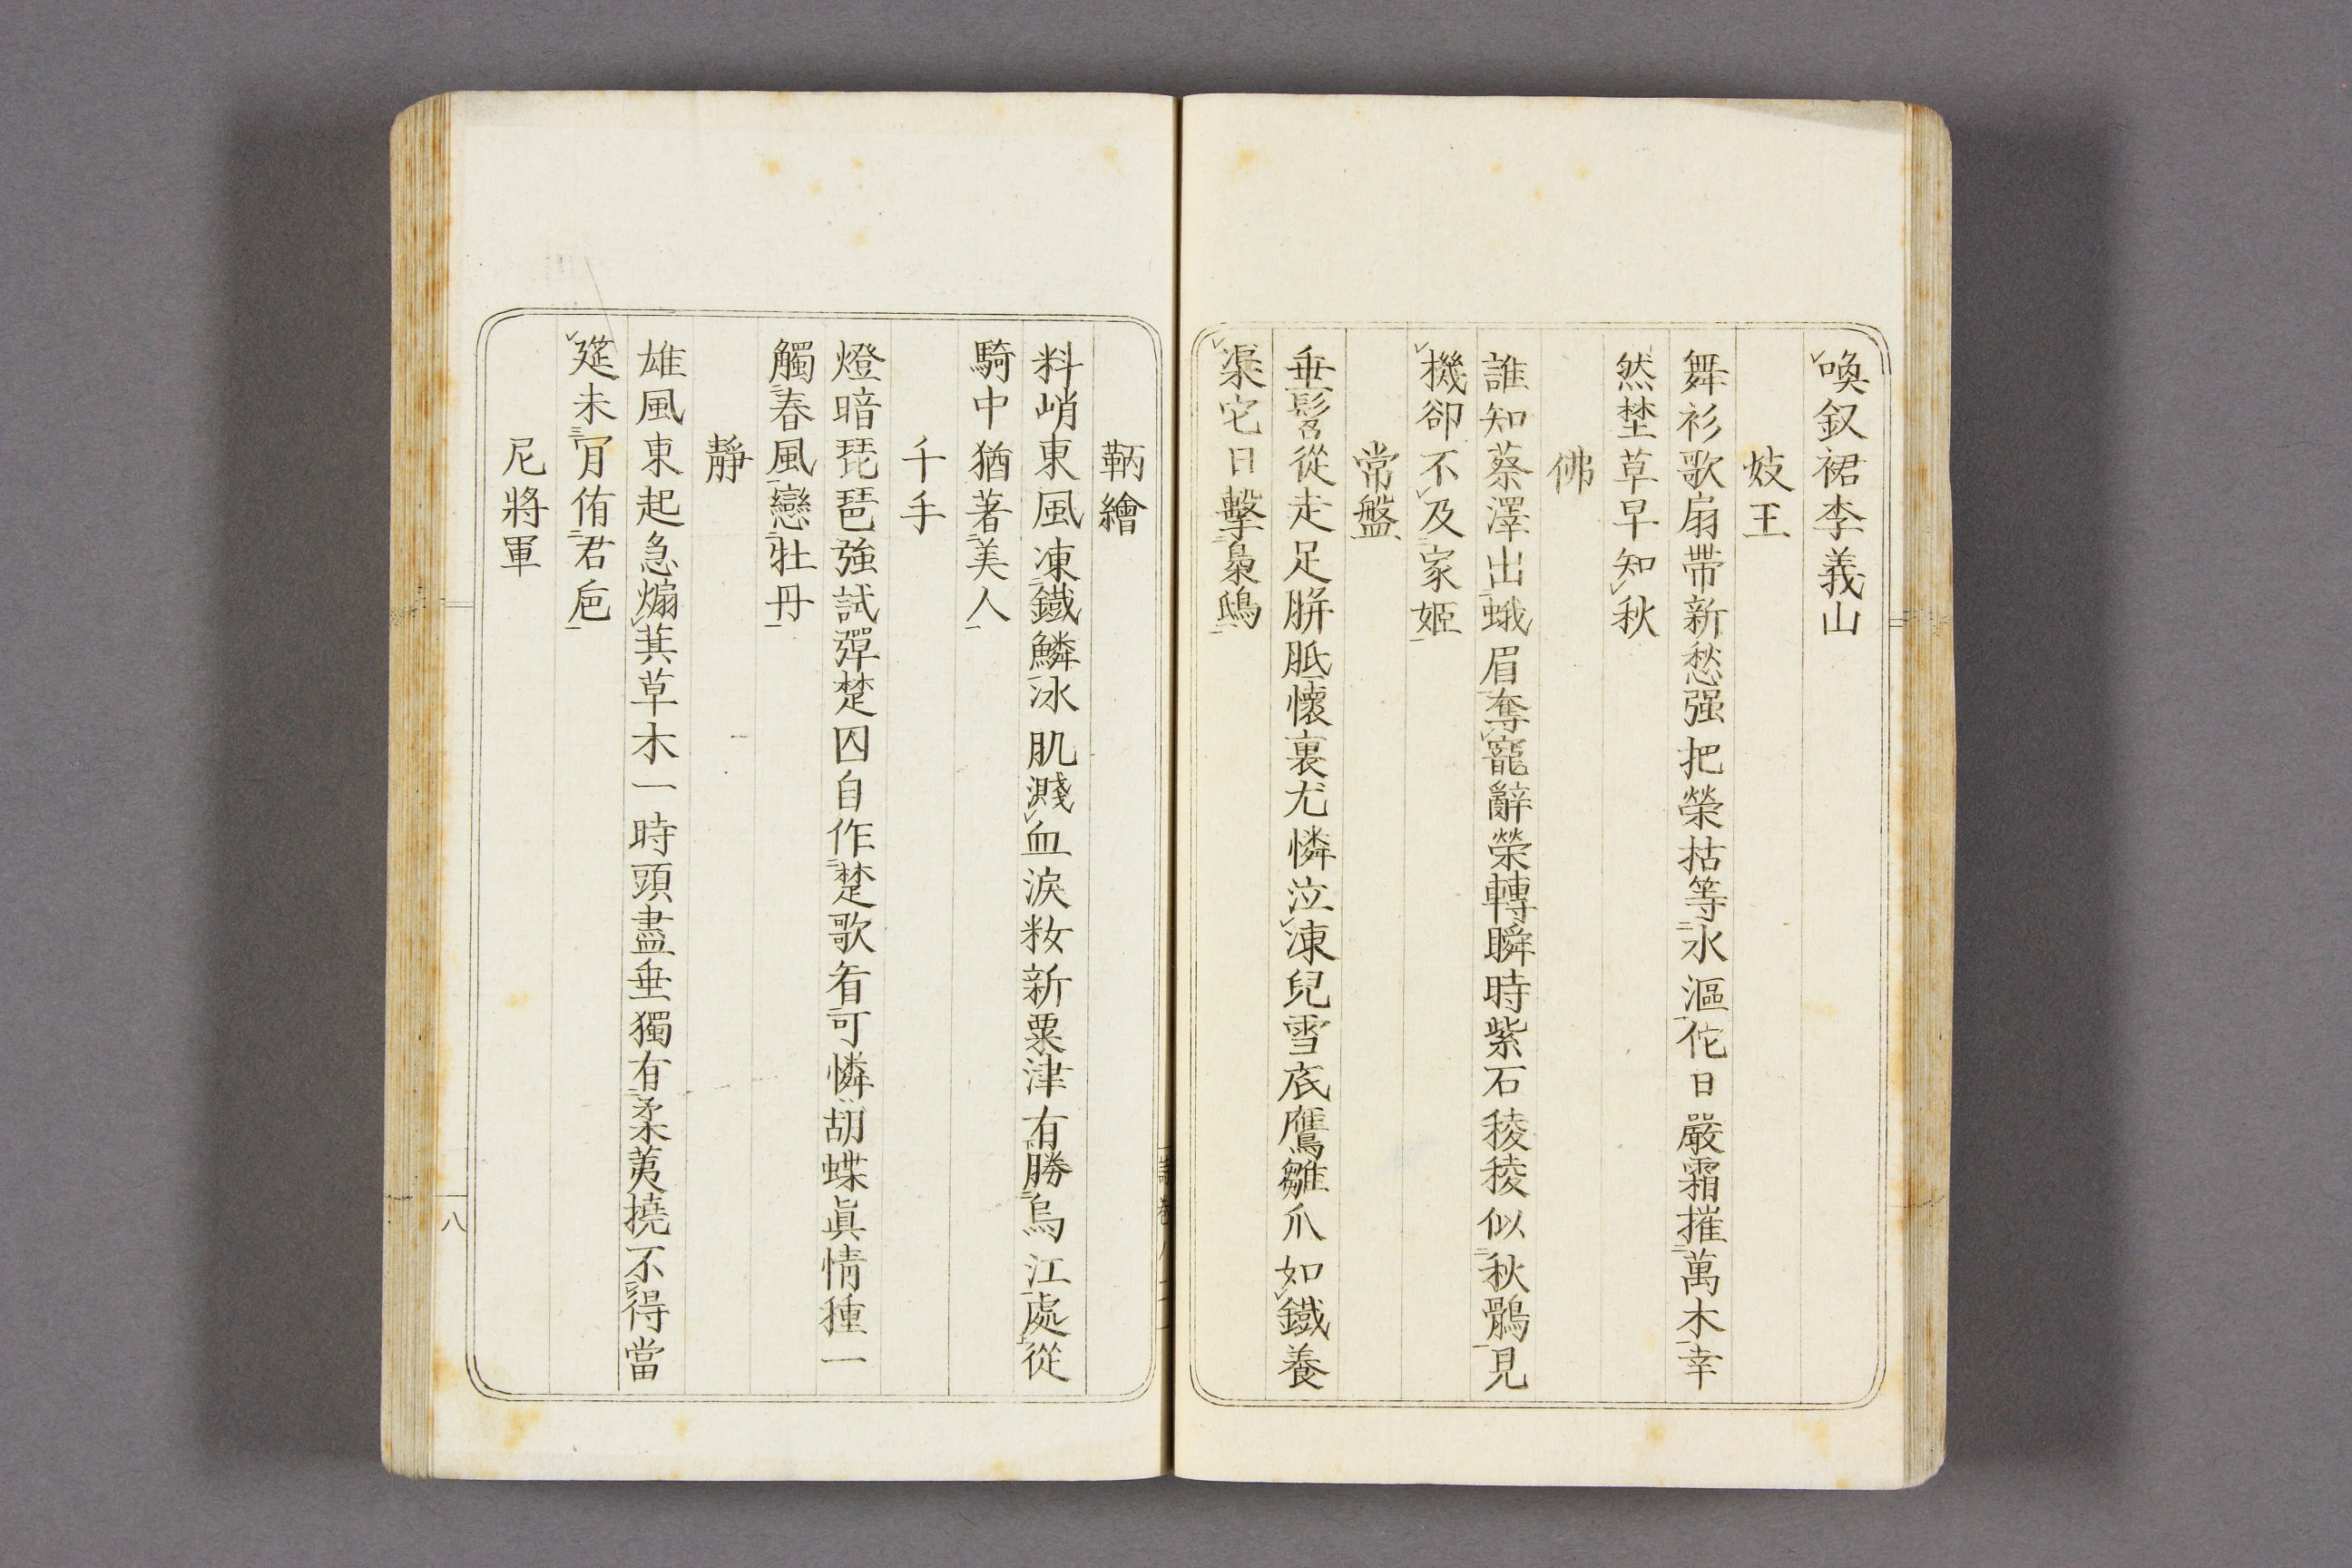 喚釵裙李義山
妓王
舞衫歌扇帶新愁强把榮枯等水漚佗日嚴霜摧萬木幸
然埜草早知秋
佛
誰知蔡澤出蛾眉奪寵辭榮轉瞬時紫石稜稜似秋鶻見
機卻不及家姬
常盤
垂髫從走足胼胝懷裏尤憐泣凍兒雪底鷹雛爪如鐵養
渠它日擊梟鴟
鞆繪
料峭東風凍鐵鱗冰肌濺血淚籹新粟津有勝烏江處從
騎中猶著美人
千手
燈暗琵琶強試彈楚囚自作楚歌看可憐胡蝶眞情種一
觸春風戀牡丹
靜
雄風東起急煽萁草木一時頭盡垂獨有柔荑撓不得當
筵未肎侑君巵
尼將軍
八